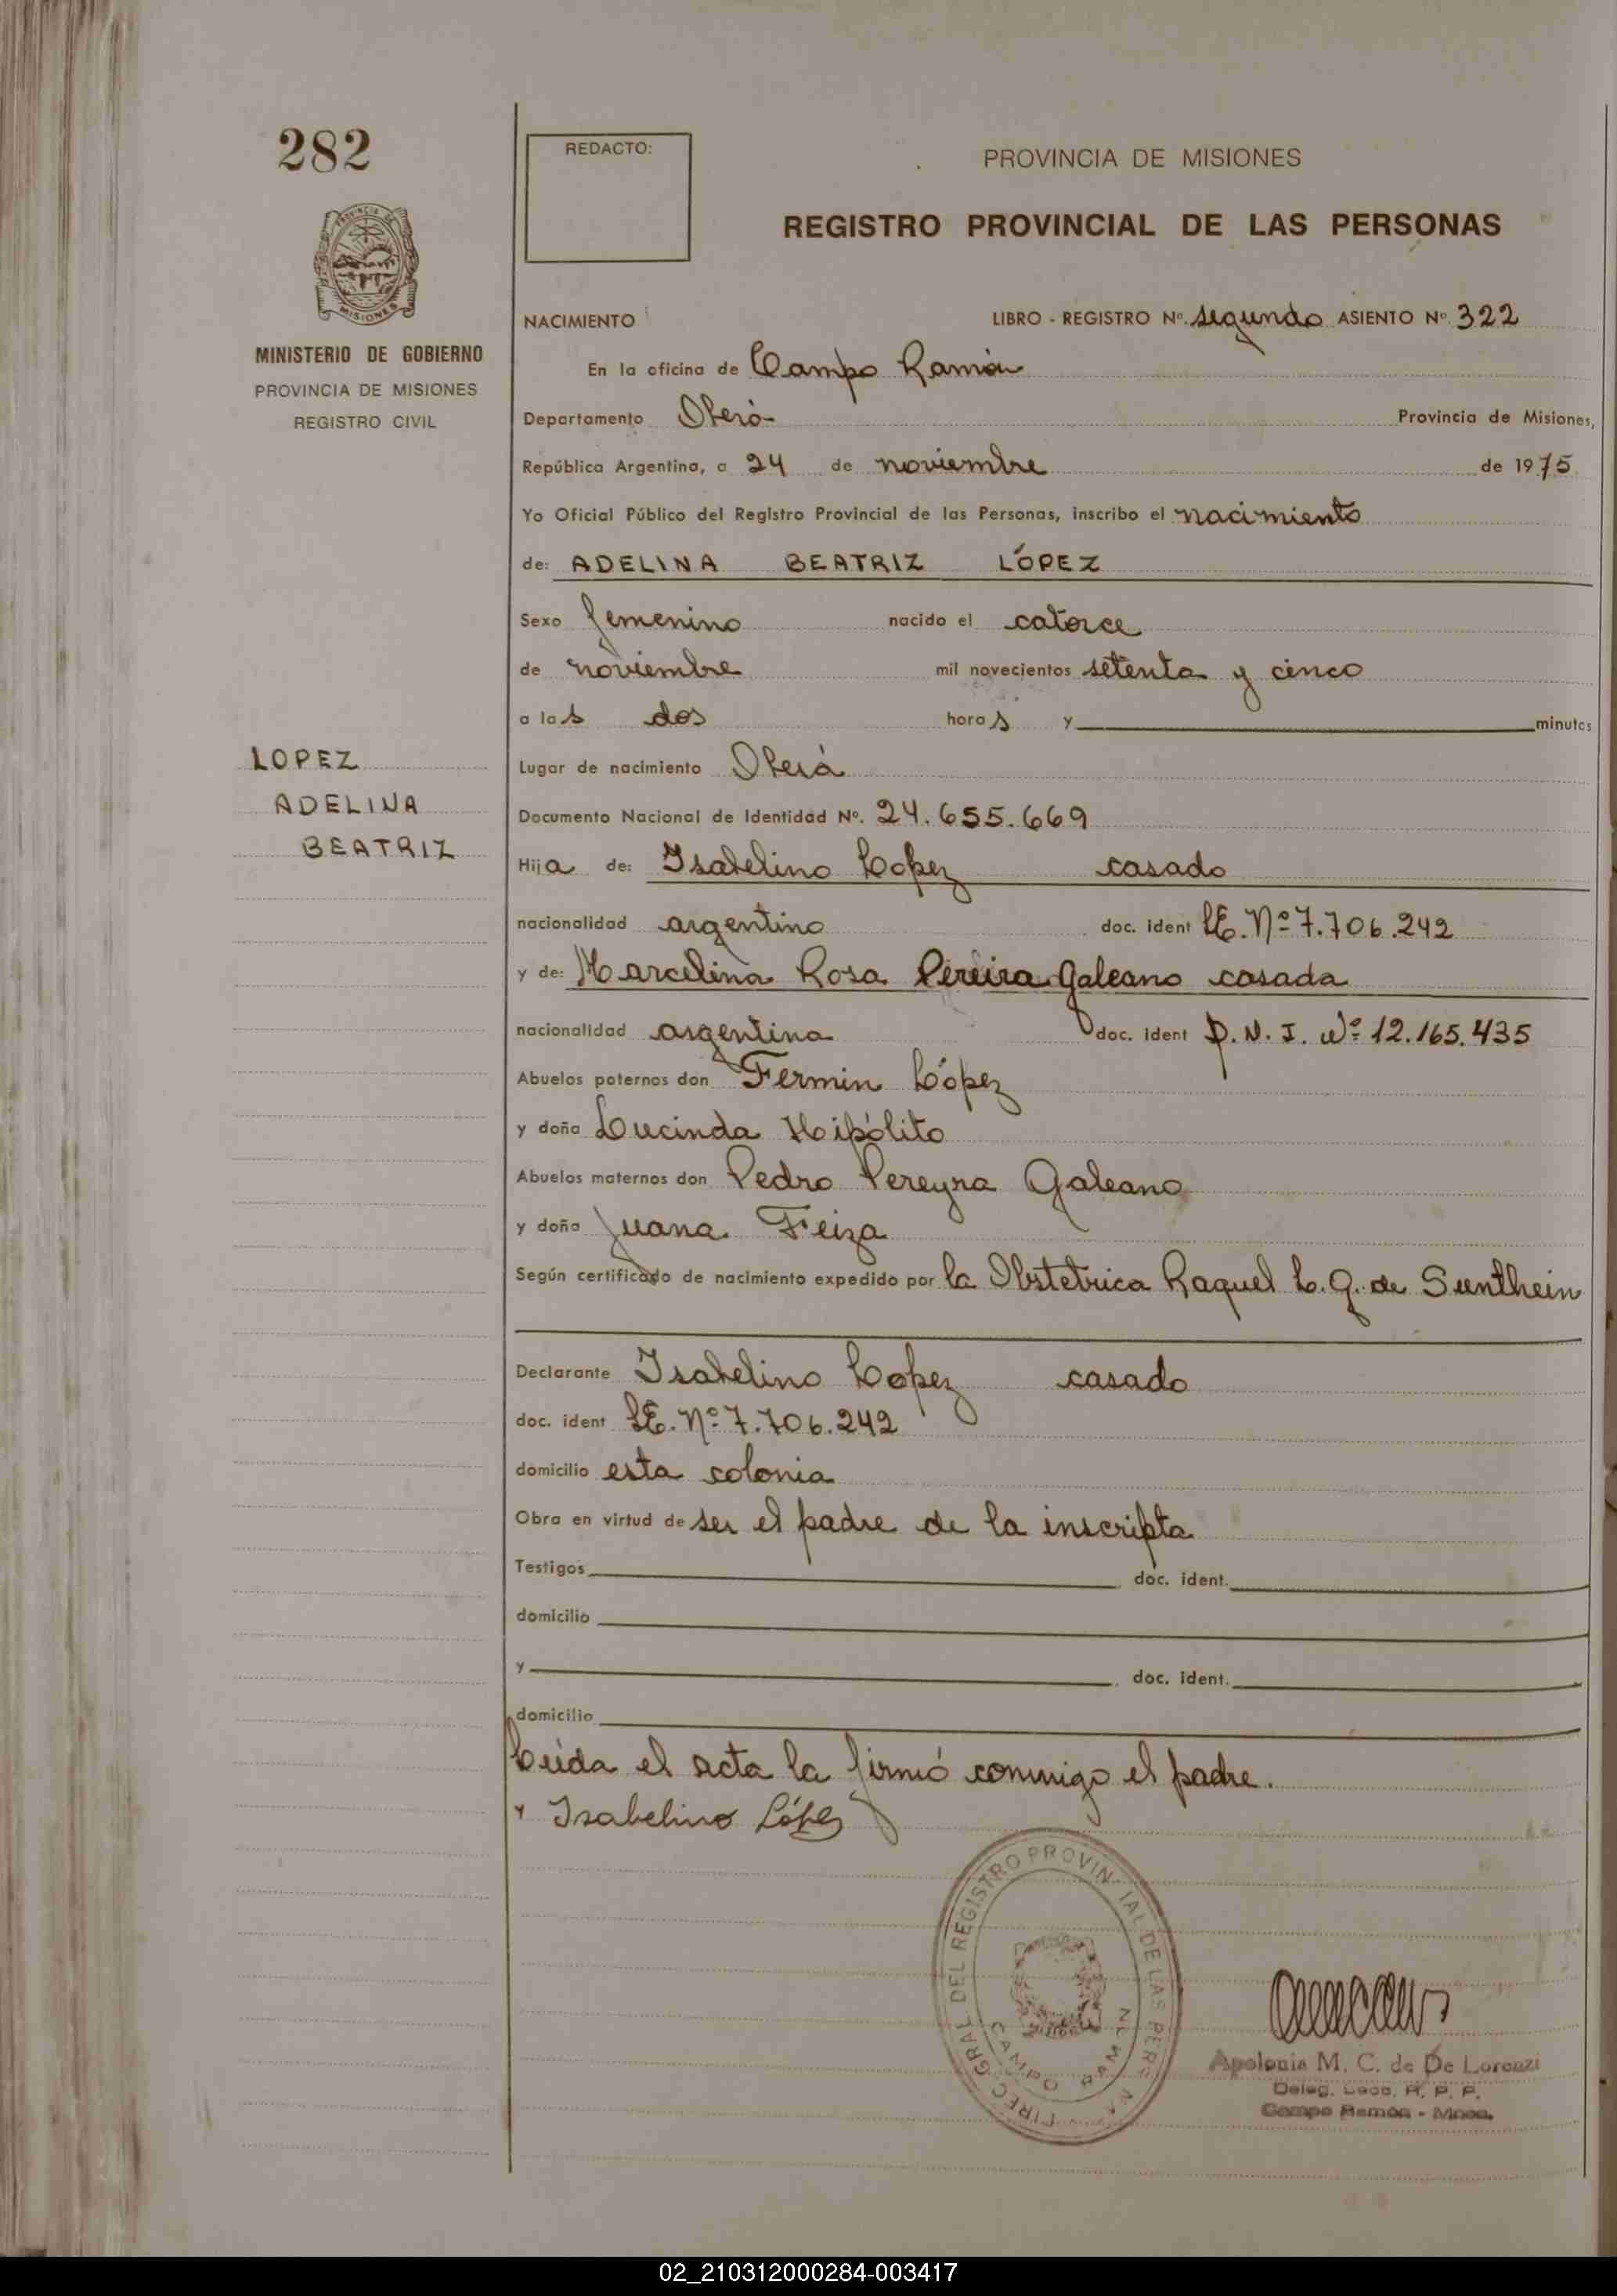 282
REDACTO:
PROVINCIA DE MISIONES
REGISTRO PROVINCIAL DE LAS PERSONAS
MISIONES
MINISTERIO DE GOBIERNO
PROVINCIA DE MISIONES
REGISTRO CIVIL
NACIMIENTO LIBRO - REGISTRO Nº. segundo ASIENTO Nº. 322
En la oficina de Campo Ramón
Departamento Oberá Provincia de Misiones,
República Argentina, a 24 de noviembre de 1975
Yo Oficial Público del Registro Provincial de las Personas, inscribo el nacimiento
de: ADELINA BEATRIZ LÓPEZ
Sexo femenino nacido el catorce
de noviembre mil novecientos setenta y cinco
a las dos horas y minutos
LOPEZ
ADELINA
BEATRIZ
Lugar de nacimiento Oberá
Documento Nacional de Identidad Nº. 24.655.669
Hija de: Isabelino Lopez casado
nacionalidad argentino doc. ident L.E. Nº 7.706.242
y de: Marcelina Rosa Pereira Galeano casada
nacionalidad argentina doc. ident D.N.I. Nº 12.165.435
Abuelos paternos don Fermin López
y doña Lucinda Hipólito
Abuelos maternos don Pedro Pereyra Galeano
y doña Juana Feiza
Según certificado de nacimiento expedido por la Obstetrica Raquel L. G. de Sunthein
Declarante Isabelino Lopez casado
doc. ident L.E. Nº 7.706.242
domicilio esta colonia
Obra en virtud de ser el padre de la inscripta
Testigos doc. ident.
domicilio
y doc. ident.
domicilio
Leída el acta la firmó conmigo el padre.
Isabelino López
GRAL. DEL REGISTRO PROVIN IAL DE LAS PER
CAMPO RAM N
Apolonia M. C. de De Lorenzi
Deleg. Loca. R. P. P.
Campo Ramón - Mnes.
02_210312000284-003417